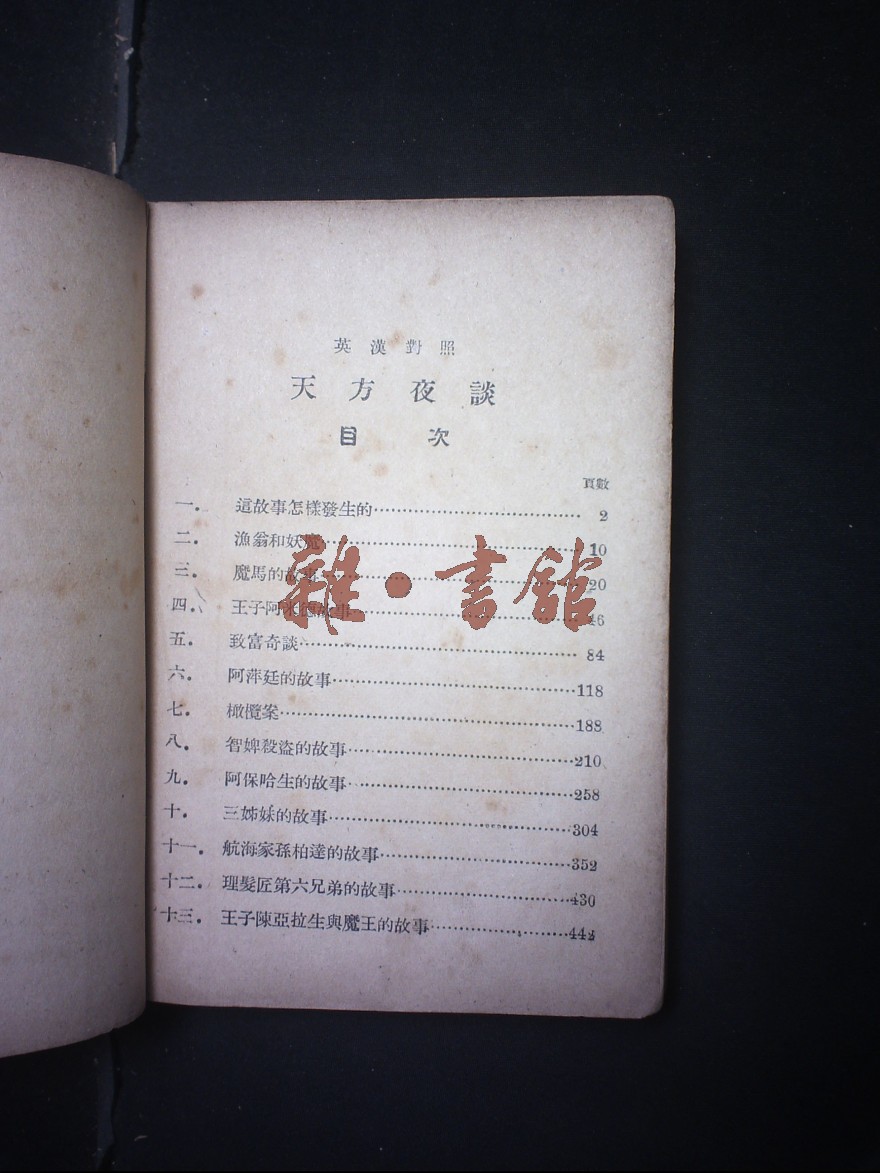 英漢對照
天方夜談
目次
頁數
一． 這故事怎樣發生的 2
二． 漁翁和妖魔 10
三． 魔馬的故事 20
四． 王子阿米德故事 46
五． 致富奇談 84
六． 阿萍廷的故事 118
七． 橄欖案 188
八． 智婢殺盜的故事 210
九． 阿保哈生的故事 258
十． 三姊妹的故事 304
十一． 航海家孫柏達的故事 352
十二． 理髮匠第六兄弟的故事 430
十三． 王子陳亞拉生與魔王的故事 442
雜·書館